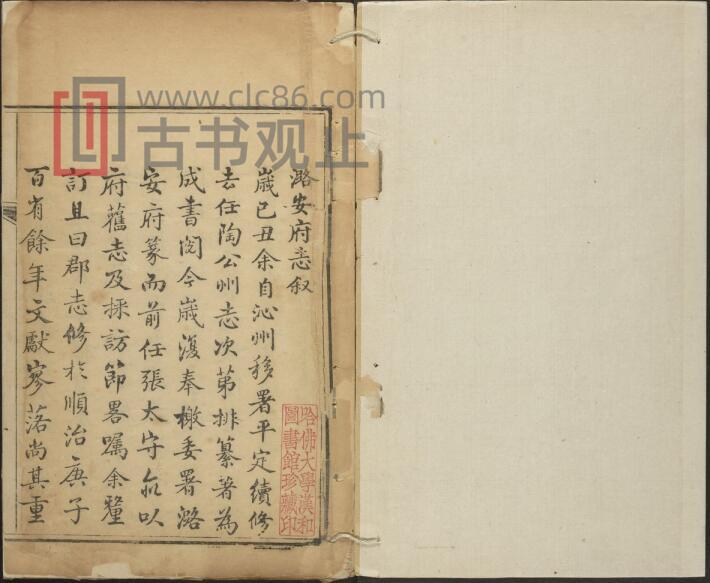 www.clc86.com
古书观止
潞安府志叙
歲己丑余自沁州移署平定續修
去任陶公州志次第排纂著為
成書閲今歲復奉檄委署潞
安府篆而前任張太守亦以
府舊志及採訪節畧囑余釐
訂且曰郡志修於順治庚子
百有餘年文獻寥落尚其重
哈佛大學漢和
圖書館珍藏印